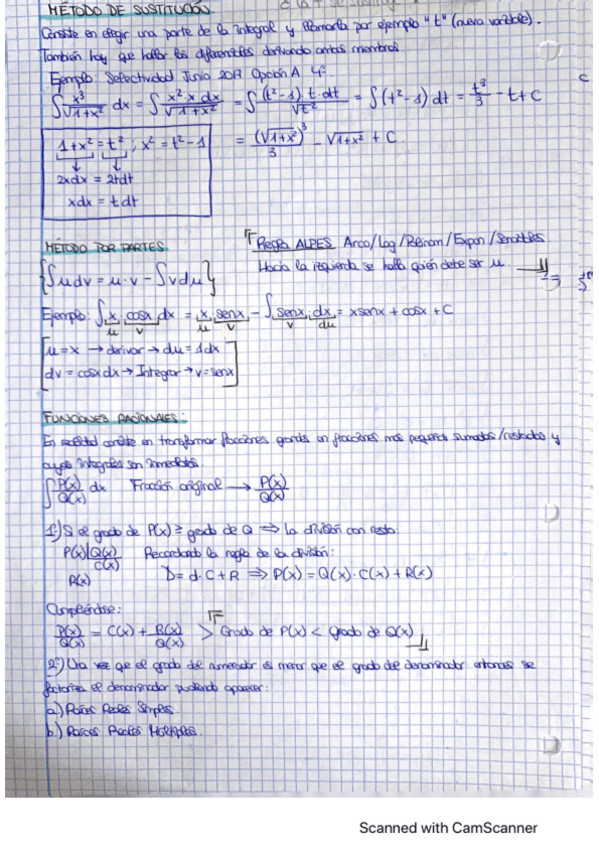 MÉTODO DE SUSTITUCIÓN.
Consiste en elegir una parte de la integral y llamarla por ejemplo "t" (nueva variable).
También hay que hallar los diferenciales derivando ambos miembros
Ejemplo Selectividad Junio 2017 Opción A 4º.
∫ x³/√(1+x²) dx = ∫ x²·x dx/√(1+x²) = ∫ (t²-1)·t·dt/√t² = ∫(t²-1) dt = t³/3 - t + C
1+x² = t² ; x² = t²-1
= (√(1+x²))³/3 - √(1+x²) + C
2xdx = 2tdt
xdx = tdt
MÉTODO POR PARTES
Regla ALPES Arco/Log/Polinom/Expon/
Hacia la izquierda se halla quién debe ser u
{∫udv = u·v - ∫vdu}
Ejemplo: ∫x, cosx, dx = x, senx - ∫senx, dx = xsenx + cosx + C
u v u v v du
u=x → derivar → du=1dx
dv = cosxdx → Integrar → v=senx
FUNCIONES RACIONALES:
En realidad consiste en transformar fracciones grandes en fracciones más pequeñas sumadas/restadas y
cuyas integrales son inmediatas
∫ P(x)/Q(x) dx Fracción original → P(x)/Q(x)
1º) Si el grado de P(x) ≥ grado de Q ⇒ la división con resto.
P(x) | Q(x) Recordando la regla de la división:
C(x)
R(x) D = d·C+R ⇒ P(x) = Q(x)·C(x)+R(x)
P(x)/Q(x) = C(x) + R(x)/Q(x) > Grado de P(x) < grado de Q(x)
2º) Una vez que el grado del numerador es menor que el grado del denominador entonces se
factoriza el denominador pudiendo aparecer:
a) Raíces Reales Simples.
b) Raíces Reales Múltiples.
Scanned with CamScanner